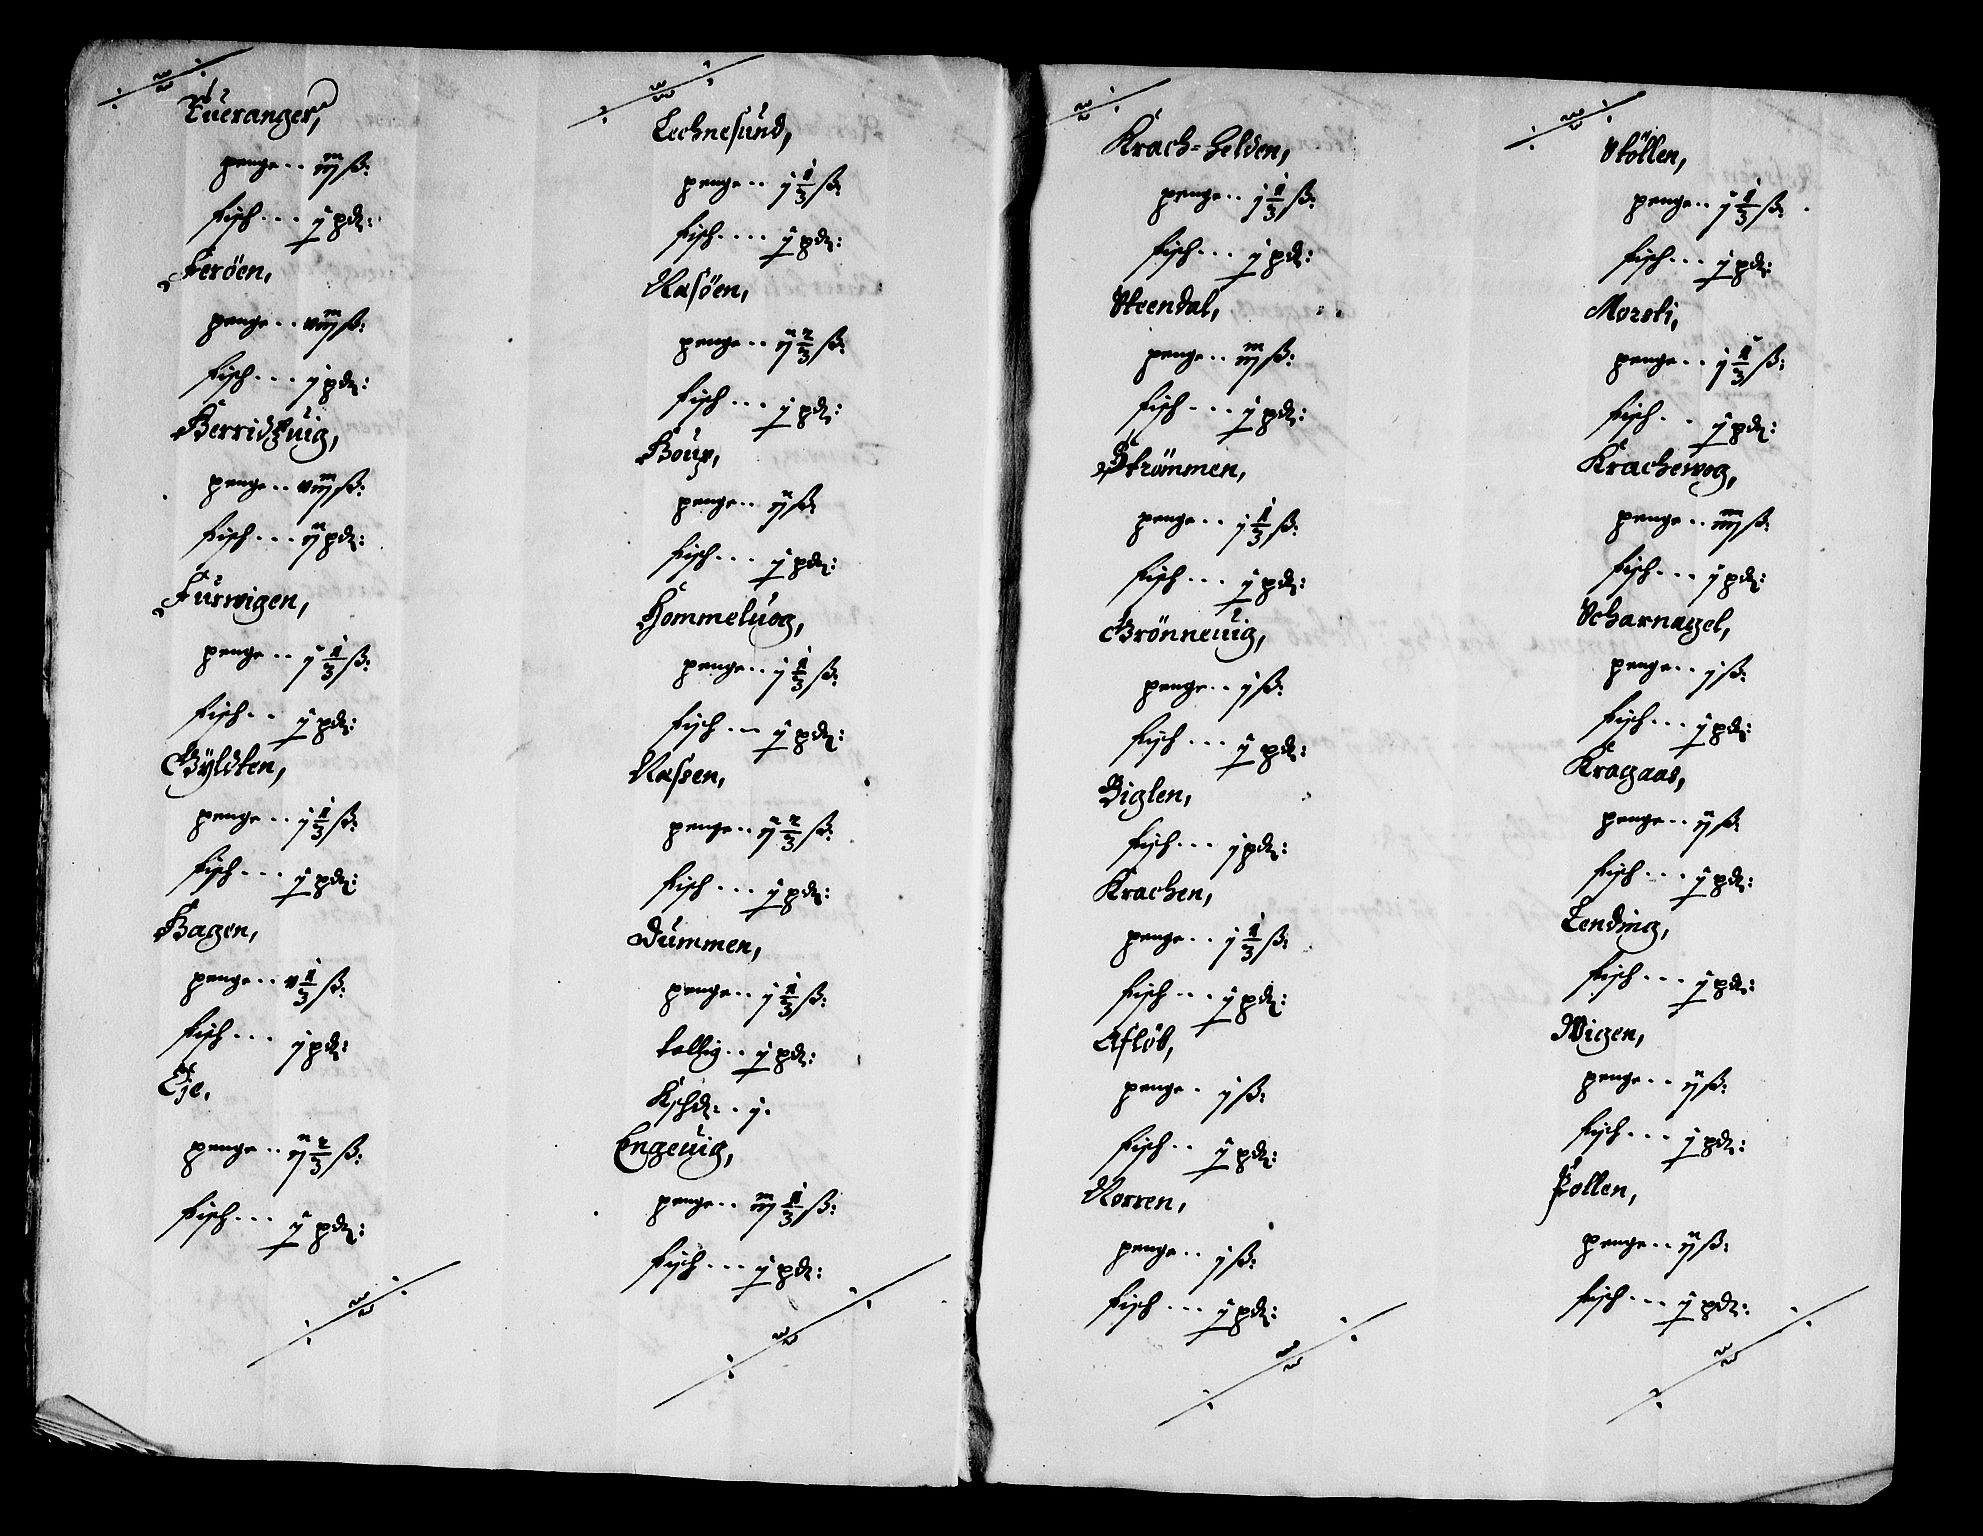 Tüeranger,
penge .. iij ß:
fisch ... j pd:
Feröen,
penge .. viij ß:
fisch ... j pd:
Berridtzuig,
penge .. viij ß:
fisch ... ij pd:
Fürwigen,
penge .. j 1/3 ß:
fisch .. j pd:
Gÿldten,
penge .. j 1/3 ß:
fisch ... j pd:
Hagen,
penge .. v 1/3 ß:
fisch ... j pd:
Eje,
penge .. ij 2/3 ß:
fisch ... j pd:
Lechnesünd,
penge .. j 1/3 ß:
fisch .... j pd:
Nasöen,
penge .. ij 2/3 ß:
fisch ... j pd:
penge .. ij ß:
fisch ... j pd:
Hommeluog,
penge .. j 1/3 ß:
fisch ... j pd:
Nassen,
penge .. ij 2/3 ß:
fisch ... j pd:
Dümmen,
penge .. j 1/3 ß:
tallig .. j pd:
.. j.
Engeuig,
penge .. iij 1/3 ß:
fisch ... j pd:
Krach=helden,
penge .. j 1/3 ß:
fisch ... j pd:
Steendal,
penge .. iij ß:
fisch ... j pd:
Strömmen,
penge .. j 1/3 ß:
fisch ... j pd:
Grönneuig,
penge .. j ß:
fisch ... j pd:
Biglen,
fisch ... j pd:
Krachen,
penge .. j 1/3 ß:
fisch ... j pd:
Aflöb,
penge . j ß:
fisch .. j pd:
Norren,
penge .. j ß:
fisch ... j pd:
Stöllen,
penge .. j 1/3 ß:
fisch ... j pd:
Moroli,
penge .. j 1/3 ß:
fisch .. j pd:
Krachewog,
penge .. iiij ß:
fisch ... j pd:
Scharnagel,
penge .. j ß:
fisch ... j pd:
Kragaas,
penge .. ij ß:
fisch ... j pd:
Lending,
fisch ... j pd:
Wigen,
penge .. ij ß:
fisch ... j pd:
Pollen,
penge .. ij ß:
fisch ... j pd: